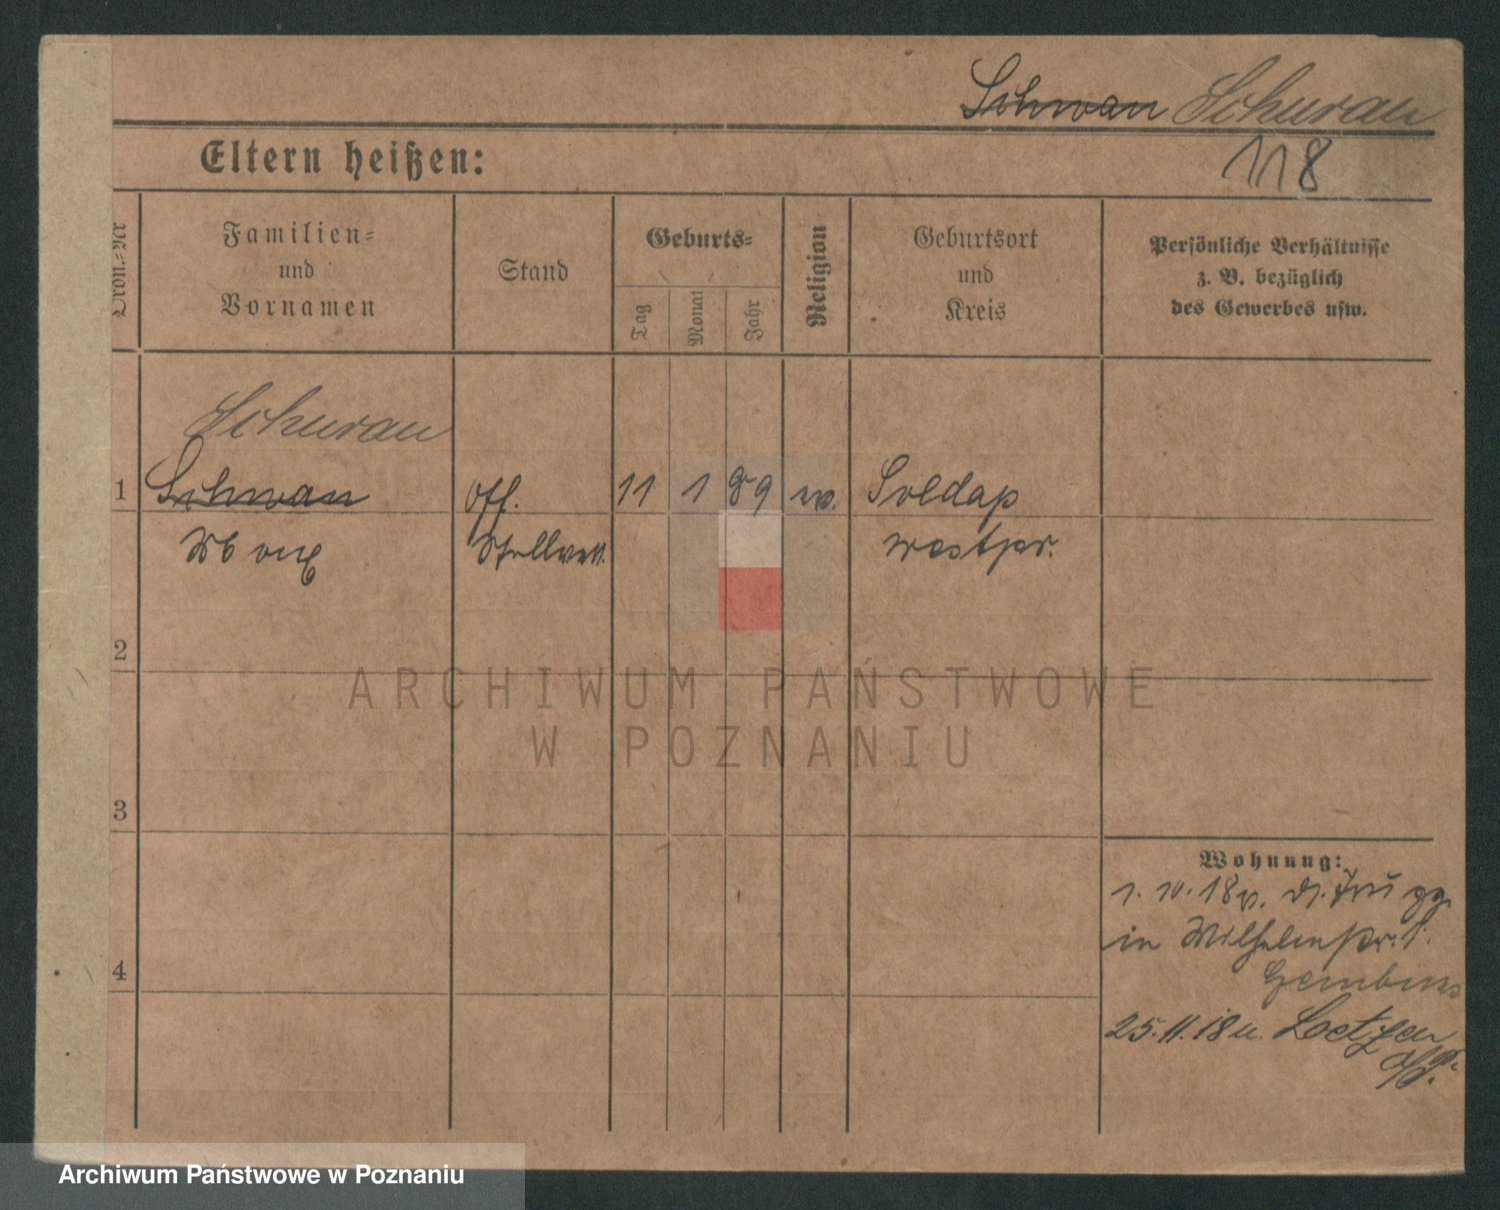 Schwan Schuran
118
Eltern heißen:
Ordn.-Nr
Familien-
und
Vornamen
Stand
Geburts-
Tag
Monat
Jahr
Religion
Geburtsort
und
Kreis
Persönliche Verhältnisse
z. B. bezüglich
des Gewerbes usw.
Schuran
1 Schwan Off. 11 1 89 Soldap
Stellvertr. Westpr.
2
3
4
Wohnung:
1. 10. 18 v.
in Wilhelmstr. 1.
25.11.18 n. Loetzen
ARCHIWUM PAŃSTWOWE
W POZNANIU
Archiwum Państwowe w Poznaniu